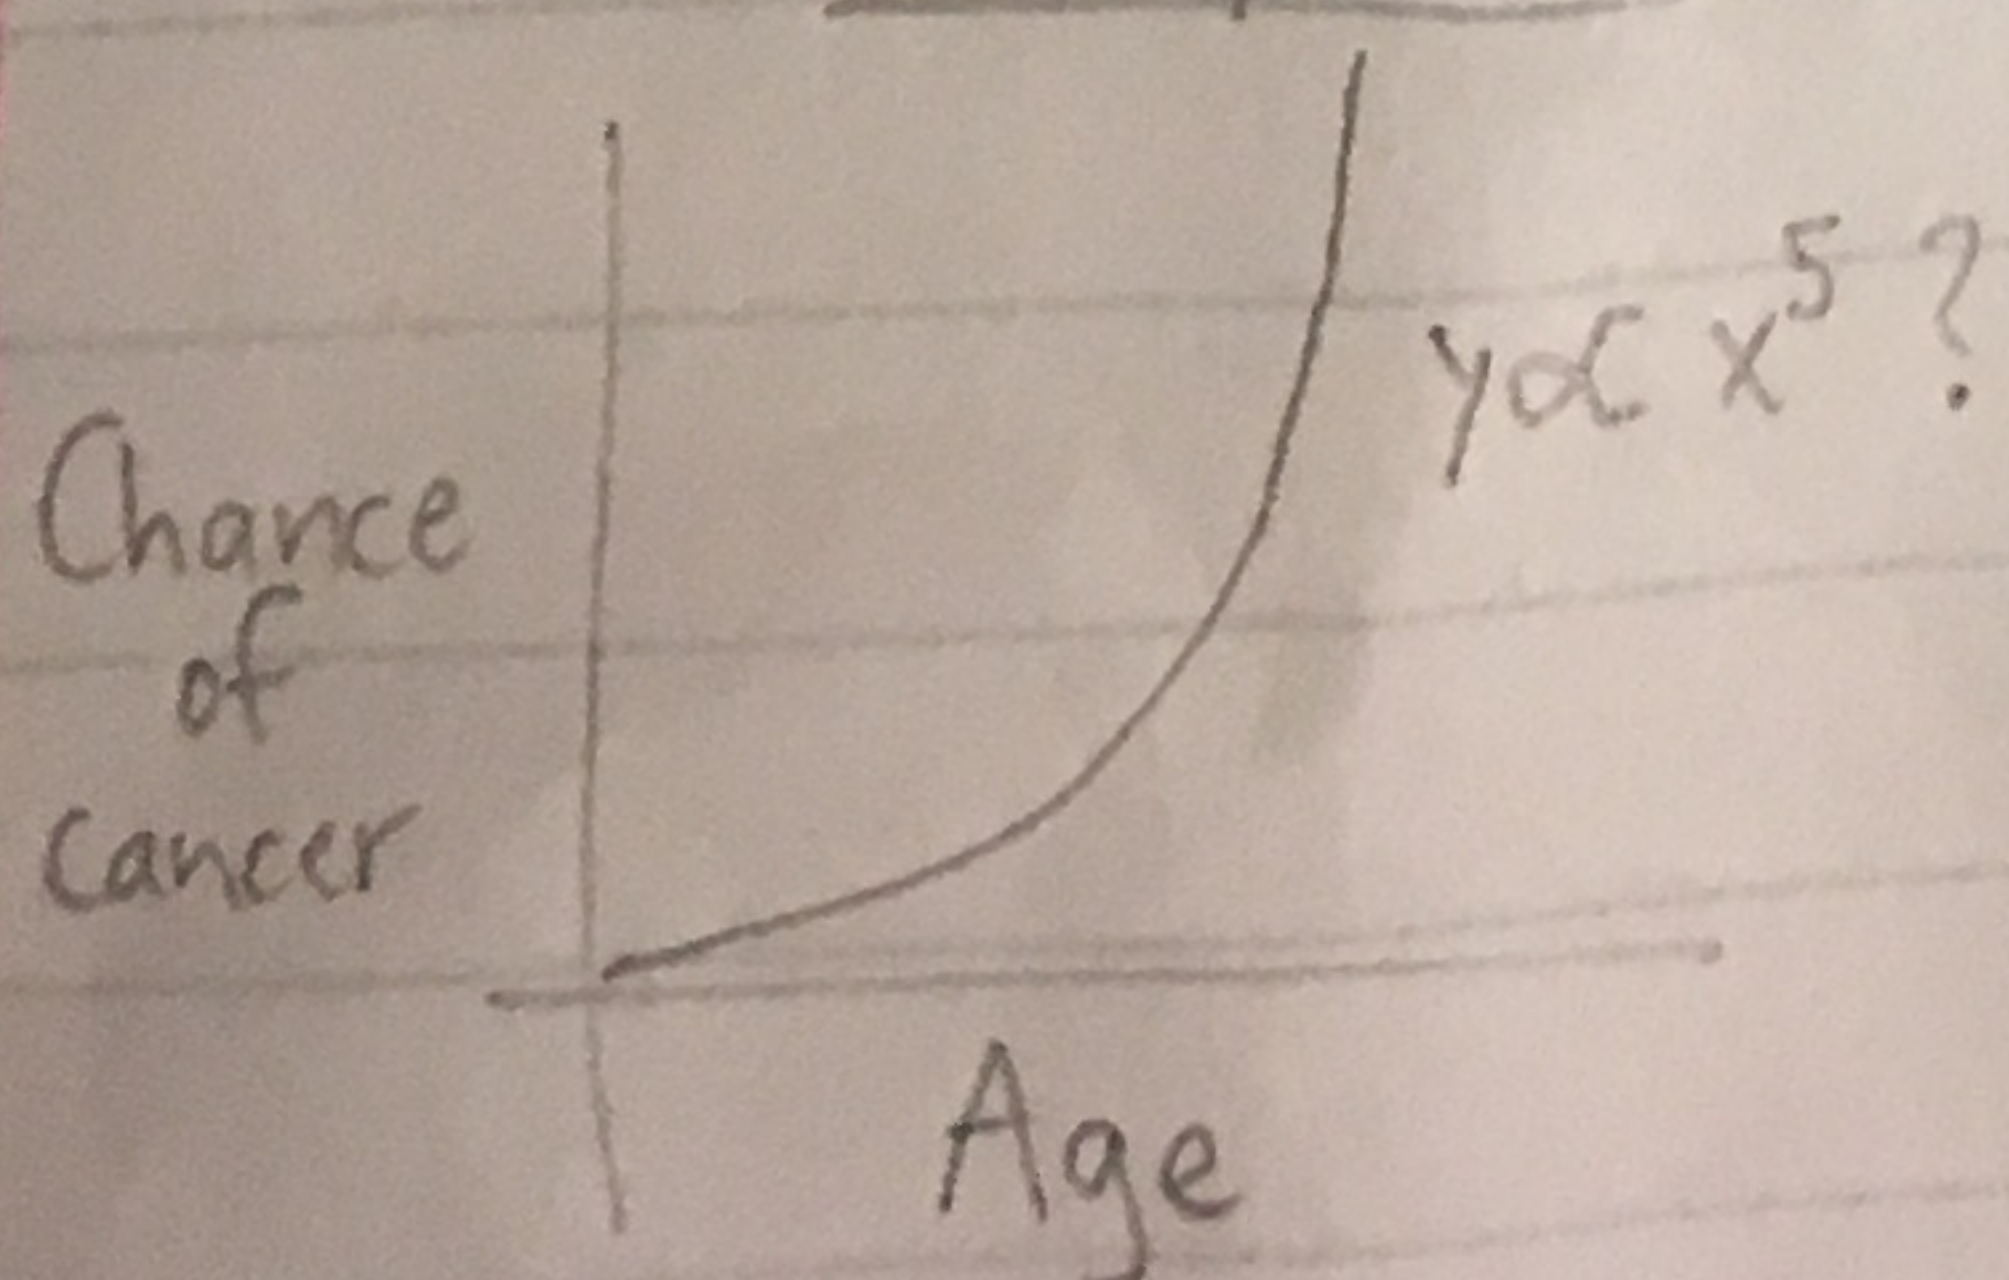 Chance
of
cancer
y∝ x⁵ ?
Age